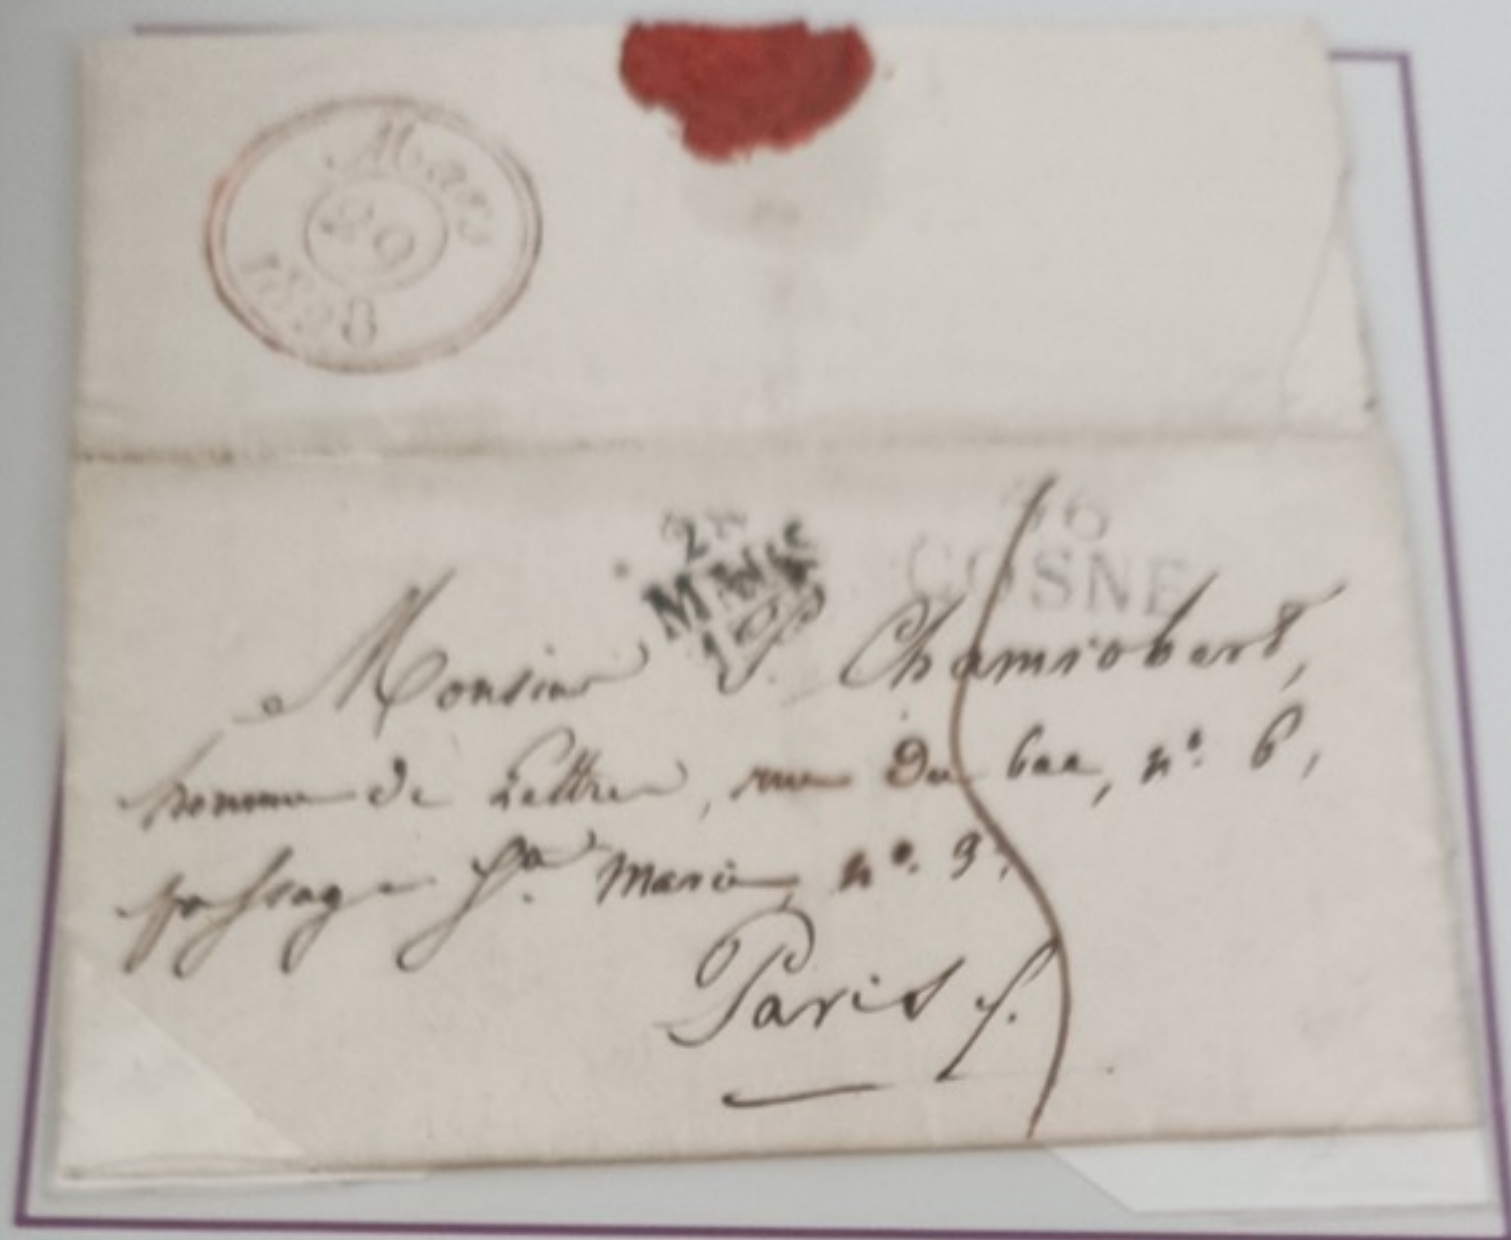 Mars
29
1828
28
MARS
56
COSNE
Monsieur P. Chamrobert,
homme de Lettres, rue du bac, n°. 6,
passage Ste. Marie, n°. 9,
Paris